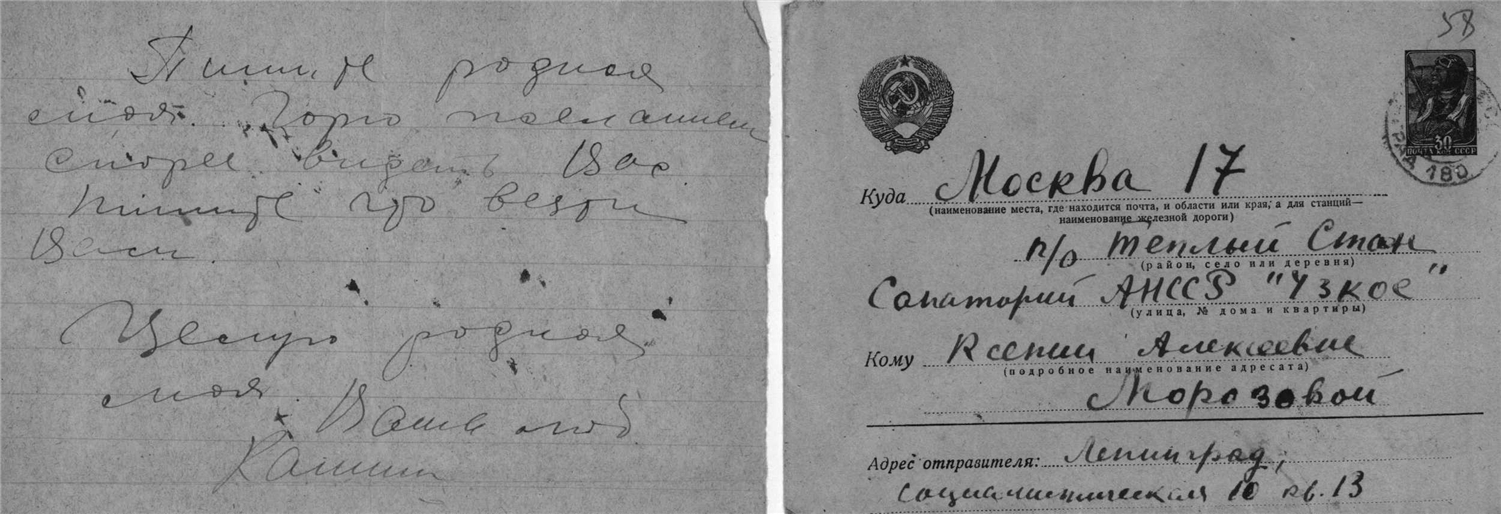 Пишите родная
моя. Горю желанием
скорее видеть Вас.
Пишите что везти
Вам.
Целую родная
моя.
Ваша люб.
58
ПОЧТА 30 СССР
180
Куда Москва 17
(наименование места, где находится почта, и области или края, а для станций—
наименование железной дороги)
п/о Тёплый Стан
(район, село или деревня)
Санаторий АНССР "Узкое"
(улица, № дома и квартиры)
Кому Ксении Алексеевне
(подробное наименование адресата)
Морозовой
Адрес отправителя: Ленинград,
Социалистическая 10 кв. 13